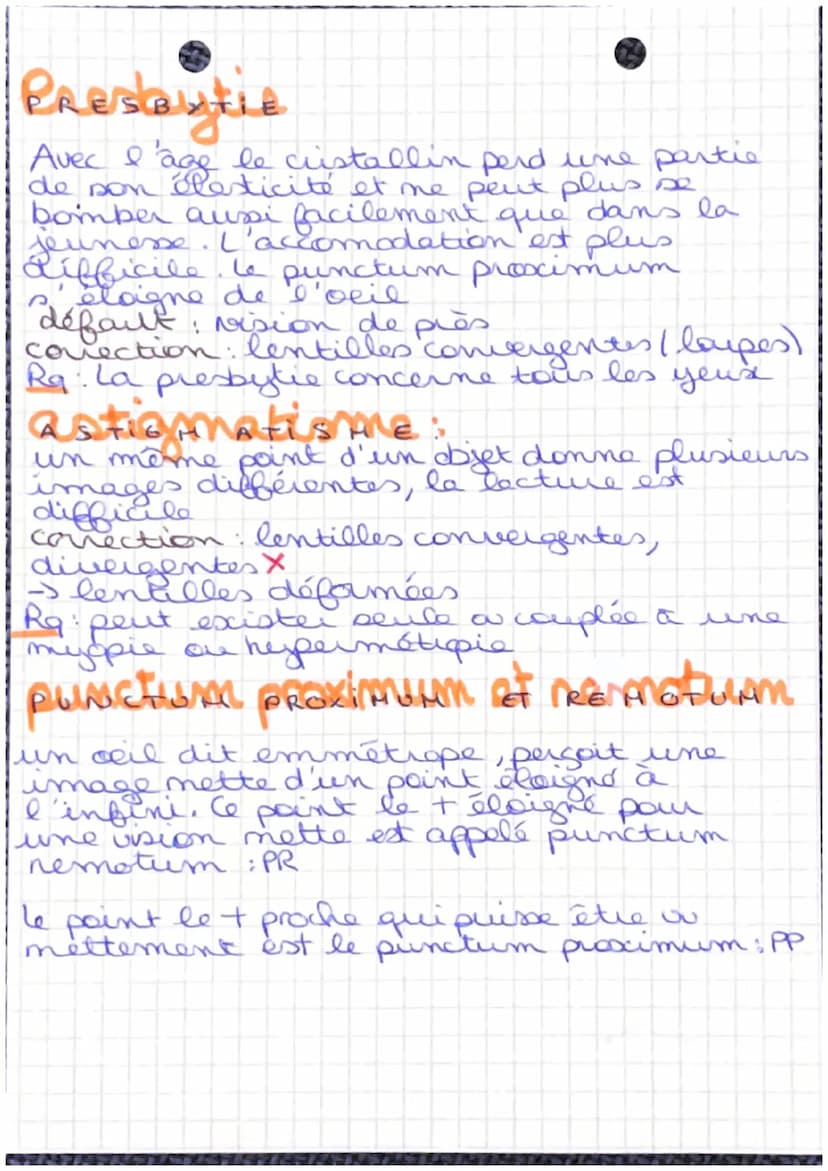 Presbytie
PRESBYTIE
Avec l'âge le cristallin perd une partie
de son élasticité et ne peut plus se
bomber aussi facilement que dans la
jeunesse. L'accomodation est plus
difficile. Le punctum proximum
s'éloigne de l'oeil
défault : vision de près
correction : lentilles convergentes (loupes)
Rq : La presbytie concerne tous les yeux
astigmatisme :
ASTIGMATISME
un même point d'un objet donne plusieurs
images différentes, la lecture est
difficile
correction : lentilles convergentes,
divergentes X
-> lentilles déformées
Rq : peut exister seule ou couplée à une
myopie ou hypermétropie
punctum proximum et remotum
PUNCTUM PROXIMUM ET REMOTUM
un oeil dit emmétrope, perçoit une
image nette d'un point éloigné à
l'infini. Ce point le + éloigné pour
une vision nette est appelé punctum
remotum : PR
Le point le + proche qui puisse être vu
nettement est le punctum proximum : PP